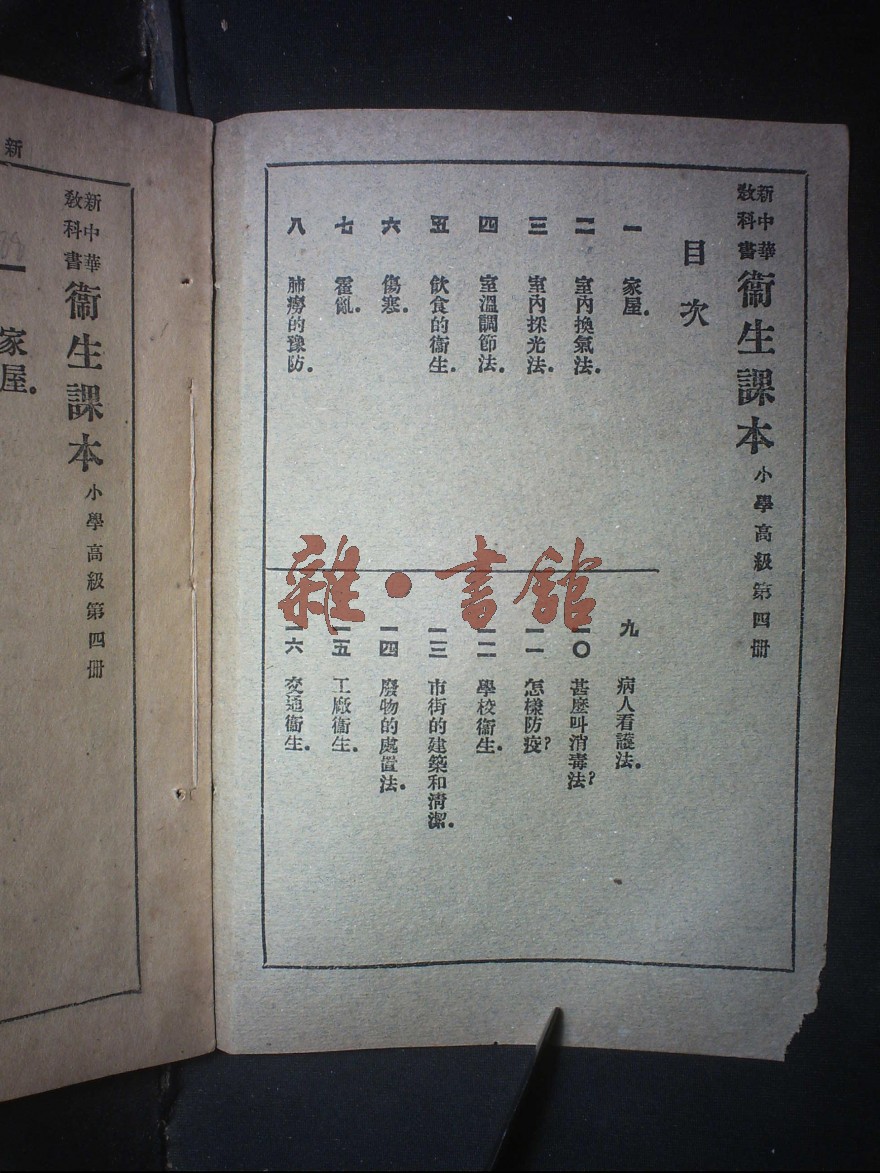 新中華
教科書
衞生課本 小學高級第四册
目次
一 家屋．
二 室內換氣法．
三 室內採光法．
四 室溫調節法．
五 飲食的衞生．
六 傷寒．
七 霍亂．
八 肺癆的豫防．
九 病人看護法．
一〇 甚麼叫消毒法？
一一 怎樣防疫？
一二 學校衞生．
一三 市街的建築和清潔．
一四 廢物的處置法．
一五 工廠衞生．
一六 交通衞生．
雜·書館
新
新中華
教科書
衞生課本 小學高級第四册
一 家屋．